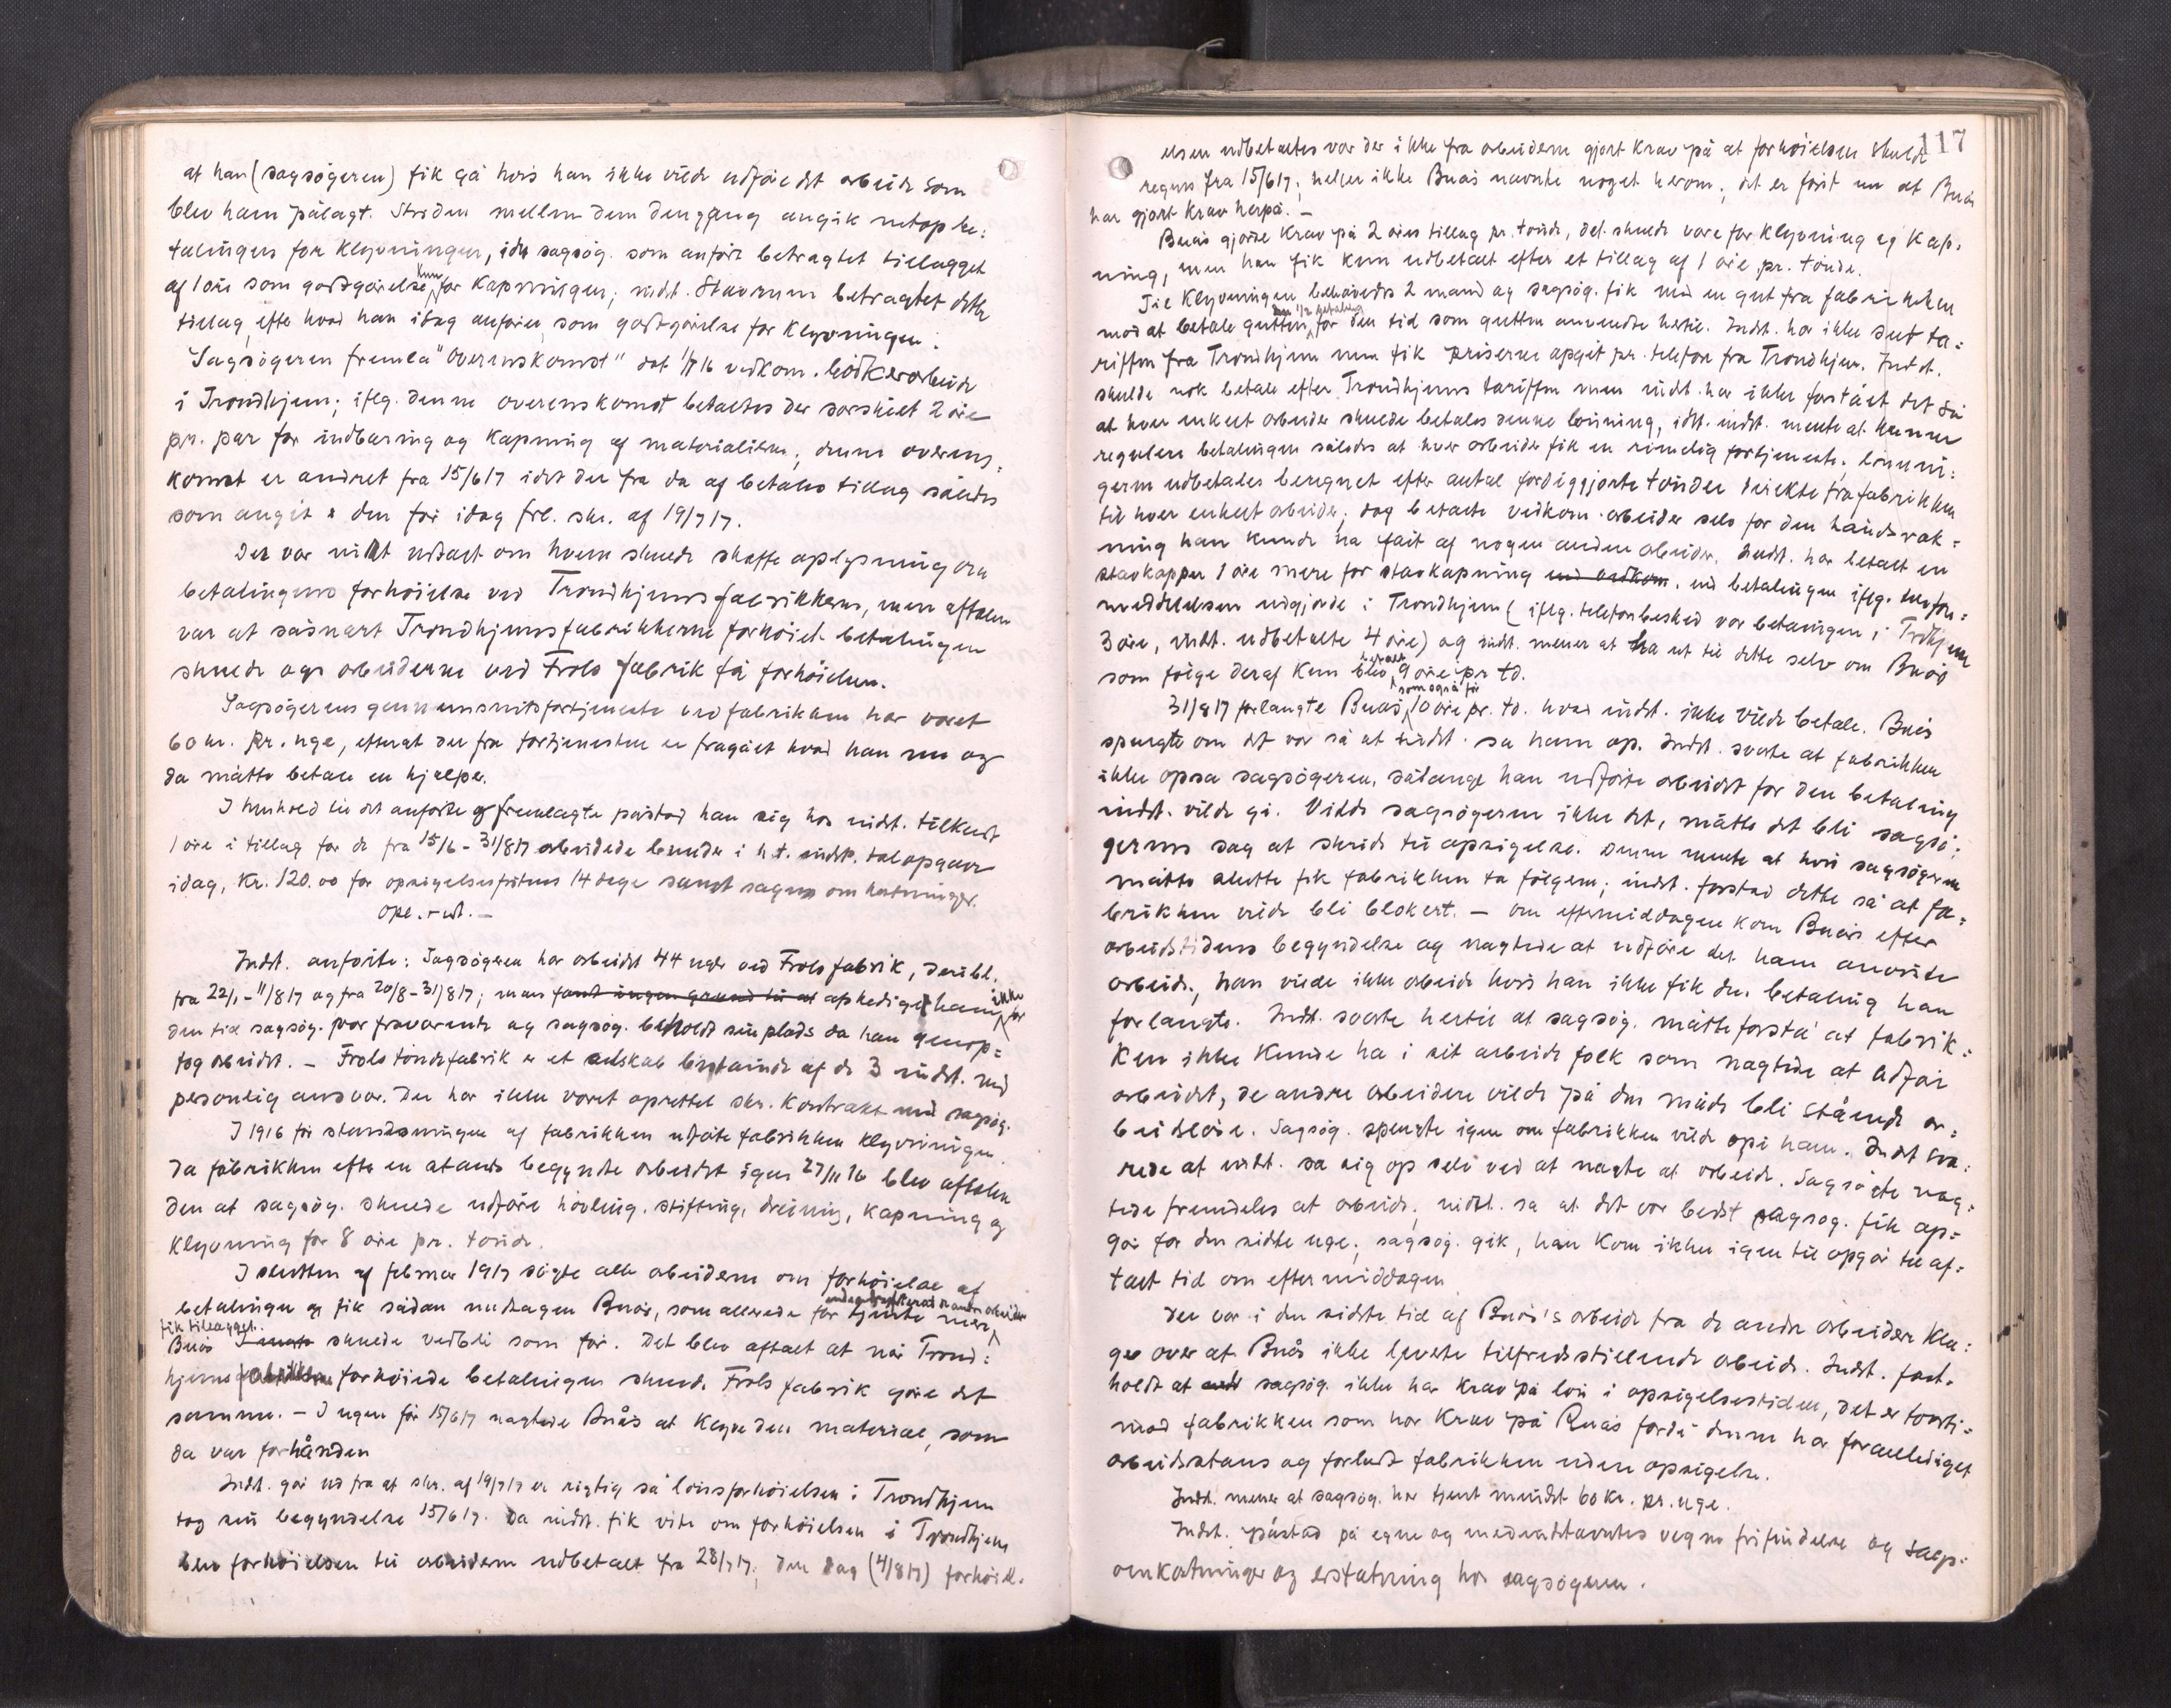 at han (sagsøgeren) fik gå hvis han ikke vilde udføre det arbeide som
blev ham pålagt. Striden mellem dem dengang angik netop be:
talingen for klyvningen, idet sagsøg. som anført betragtet tillægget
af 1 øre som godtgørelse kun for kapningen, indst. Stavrum betragtet dette
tillæg, efter hvad han idag anfører, som godtgjørelse for klyvningen.
Sagsøgeren fremla "Overenskomst" dat 1/7 16 vedkom. bødkerarbeide
i Trondhjem; iflg. denne overenskomst betaltes der særskilt 2 øre
pr. par for indbæring og kapning af materialerne; denne overens:
komst er ændret fra 15/6 17 idet der fra da af betales tillæg således
som angit i den før idag frl. skr. af 19/7 17.
Der var intet udtalt om hvem skulde skaffe oplysning om
betalingens forhøielse ved Trondhjemsfabrikkerne, men aftalen
var at såsnart Trondhjemsfabrikkerne forhøiet betalingen
skulde ogs arbeiderne ved Frols fabrik få forhøielsen.
Sagsøgerens gennemsnitsfortjeneste ved fabrikken har været
60 kr. pr. uge, efterat der fra fortjenesten er fragået hvad han nu og
da måtte betale en hjælper.
I henhold til det anførte og fremlagte påstod han sig hos indst. tilkendt
1 øre i tillæg for de fra 15/6 - 31/8 17 arbeidede tønder i h.t. indst. talopgave
idag, kr. 120.00 for opsigelsesfristens 14 dage samt sagens omkostninger.
opl. + ved. -
Indst. anførte: Sagsøgeren har arbeidet 44 uger ved Frols fabrik, deribl.
fra 22/1 - 11/8 17 og fra 20/8 - 31/8 17; man fandt ingen grund til at afskediget ham ikke for
den tid sagsøg. var fraværende og sagsøg. beholdt sin plads da han genop=
tog arbeidet. - Frols tøndefabrik er et selskab bestående af de 3 indst. med
personlig ansvar. Der har ikke været oprettet skr. kontrakt med sagsøg.
I 1916 før standsningen af fabrikken udførte fabrikken klyvningen.
Da fabrikken efter en stands begyndte arbeidet igen 27/11 16 blev aftalen
den at sagsøg. skulde udføre høvling, stifting, dreining, kapning og
klyvning for 8 øre pr. tønde.
I slutten af februar 1917 søgte alle arbeiderne om forhøielse af
betalingen og fik sådan undtagen Buås, som allerede før tjente mer
fik tillægget.
Buås skulde vedbli som før. Det blev aftalt at når Trond:
hjemsfabrikken forhøiede betalingen skulde Frols fabrik gøre det
samme. - I ugen før 15/6 17 nægtede Buås at klyve den material, som
da var forhånden
Indst. går ud fra at skr. af 19/7 17 er rigtig så lønsforhøielsen i Trondhjem
tog sin begyndelse 15/6 17. Da indst. fik vite om forhøielsen i Trondhjem
blev forhøielsen til arbeiderne udbetalt fra 28/7 17. Den dag (4/8 17) forhøiel.
117
elsen udbetaltes var der ikke fra arbeiderne gjort krav på at forhøielsen skulde
regnes fra 15/6 17; heller ikke Buås nævnte noget herom; det er først nu at Buås
har gjort krav herpå. -
Buås gjorde krav på 2 øres tillæg pr. tønde, det skulde være for klyvning og kap=
ning, men han fik kun udbetalt efter et tillæg af 1 øre pr. tønde.
Til klyvningen behøvedes 2 mand og sagsøg. fik med en gut fra fabrikken
mod at betale gutten den 1/2 betaling for den tid som gutten anvendte hertil. Indst. har ikke set ta:
riffen fra Trondhjem men fik priserne opgit pr. telefon fra Trondhjem. Indst.
skulde nok betale efter Trondhjems tariffen men indst. har ikke forstået det så
at hver enkelt arbeider skulde betales denne lønning, idet indst. mente at kunne
regulere betalingen således at hver arbeider fik en rimelig fortjeneste. Lønnin:
gerne udbetales beregnet efter antal færdiggjorte tønder direkte fra fabrikken
til hver enkelt arbeider; dog betalte vedkom. arbeider selv for den håndsræk=
ning han kunde ha fåt af nogen anden arbeider. Indst. har betalt en
stavkapper 1 øre mere for stavkapning end vedkom. end betalingen iflg. telefon=
meddelelsen udgjorde i Trondhjem (iflg. telefonbesked var betalingen i Trdhjem
3 øre, indst. udbetalte 4 øre) og indst. mener at ha ret til dette selv om Buås
som følge deraf kun blev betalt 9 øre pr td.
31/8 17 forlangte Buås, som også før 10 øre pr. td. hvad indst. ikke vilde betale. Buås
spurgte om det var så at indst. sa ham op. Indst. svarte at fabrikken
ikke opsa sagsøgeren, sålænge han udførte arbeidet for den betaling
indst. vilde gi. Vilde sagsøgeren ikke det, måtte det bli sagsø:
gerens sag at skride til opsigelse. Denne mente at hvis sagsøgeren
måtte slutte fik fabrikken ta følgerne; indst. forstod dette så at fa=
brikken vilde bli blokert. - Om eftermiddagen kom Buås efter
arbeidstidens begyndelse og nægtede at udføre det ham anviste
arbeide, han vilde ikke arbeide hvis han ikke fik den betaling han
forlangte. Indst. svarte hertil at sagsøg. måtte forstå at fabrik=
ken ikke kunde ha i sit arbeide folk som nægtede at udføre
arbeidet, de andre arbeidere vilde på den måde bli stående ar=
beidsløse. Sagsøg. spurgte igen om fabrikken vilde opsi ham. Indst sva:
rede at indst. sa sig op selv ved at nægte at arbeide. Sagsøgte næg:
tede fremdeles at arbeide; indst. sa at det var bedst sagsøg. fik op=
gør for den sidste uge; sagsøg. gik, han kom ikke igen til opgør til af=
talt tid om eftermiddagen
Der var i den sidste tid af Buås's arbeide fra de andre arbeidere kla:
ger over at Buås ikke leverte tilfredsstillende arbeide. Indst. fast.
holdt at indst sagsøg. ikke har krav på løn i opsigelsestiden, det er tvert=
mod fabrikken som har krav på Buås fordi denne har foranlediget
arbeidsstans og forladt fabrikken uden opsigelse.
Indst. mener at sagsøg. har tjent mindst 60 kr. pr. uge.
Indst. påstod på egne og medindstævntes vegne frifindelse og sags=
omkostninger og erstatning hos sagsøgeren.